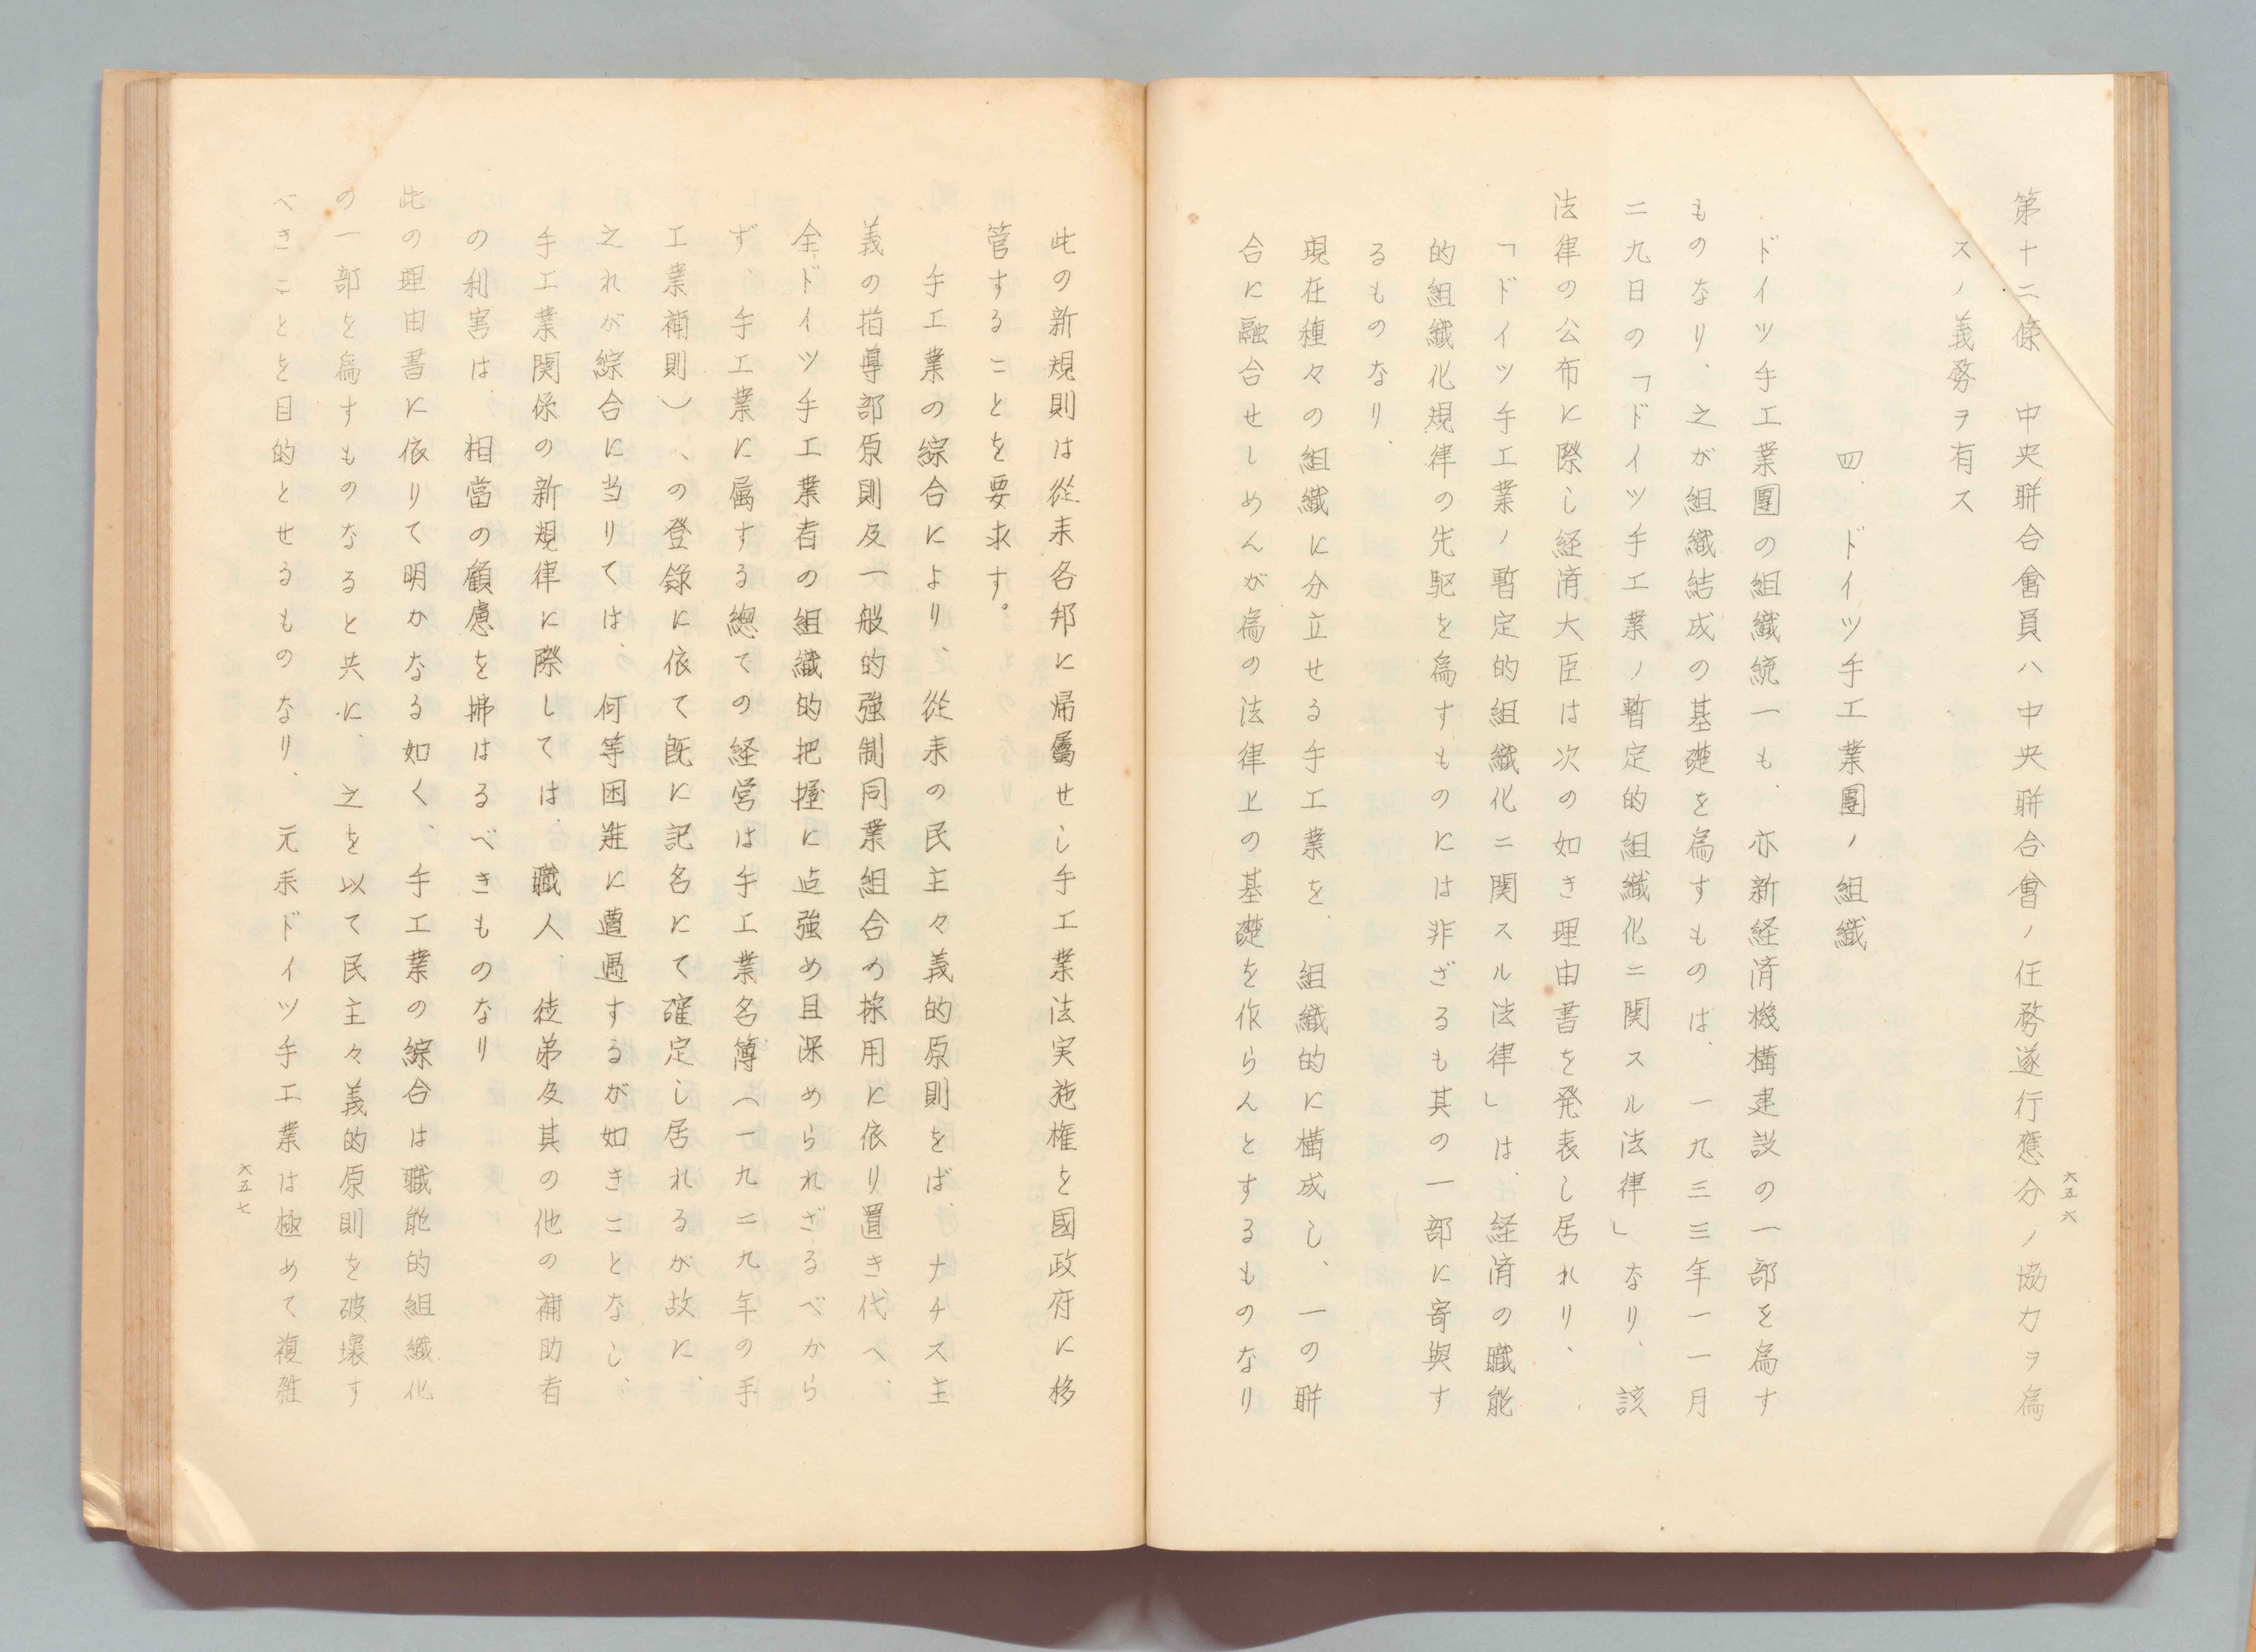 第十二條　中央聯合會員ハ中央聯合會ノ任務遂行應分ノ協力ヲ爲
スノ義務ヲ有ス
四、ドイツ手工業團ノ組織
ドイツ手工業團の組織統一も、亦新経済機構建設の一部を爲す
ものなり、之が組織結成の基礎を爲すものは、一九三三年一一月
二九日の「ドイツ手工業ノ暫定的組織化ニ関スル法律」なり、該
法律の公布に際し経済大臣は次の如き理由書を発表し居れり、
「ドイツ手工業ノ暫定的組織化ニ関スル法律」は、経済の職能
的組織化規律の先駆を爲すものには非ざるも其の一部に寄與す
るものなり、
現在種々の組織に分立せる手工業を、組織的に構成し、一の聯
合に融合せしめんが爲の法律上の基礎を作らんとするものなり
六五六
此の新規則は從来各邦に帰屬せし手工業法実施権を國政府に移
管することを要求す。
手工業の綜合により、從来の民主々義的原則をば、ナチス主
義の指導部原則及一般的強制同業組合の採用に依り置き代へ、
全ドイツ手工業者の組織的把握に迠強め且深められざるべから
ず、手工業に属する總ての経営は手工業名簿（一九二九年の手
工業補則）、の登錄に依て既に記名にて確定し居れるが故に、
之れが綜合に当りては、何等困難に遭遇するが如きことなし、
手工業関係の新規律に際しては、職人、徒弟及其の他の補助者
の利害は、相當の顧慮を拂はるべきものなり
此の理由書に依りて明かなる如く、手工業の綜合は職能的組織化
の一部を爲すものなると共に、之を以て民主々義的原則を破壞す
べきことを目的とせるものなり、元来ドイツ手工業は極めて複雑
六五七